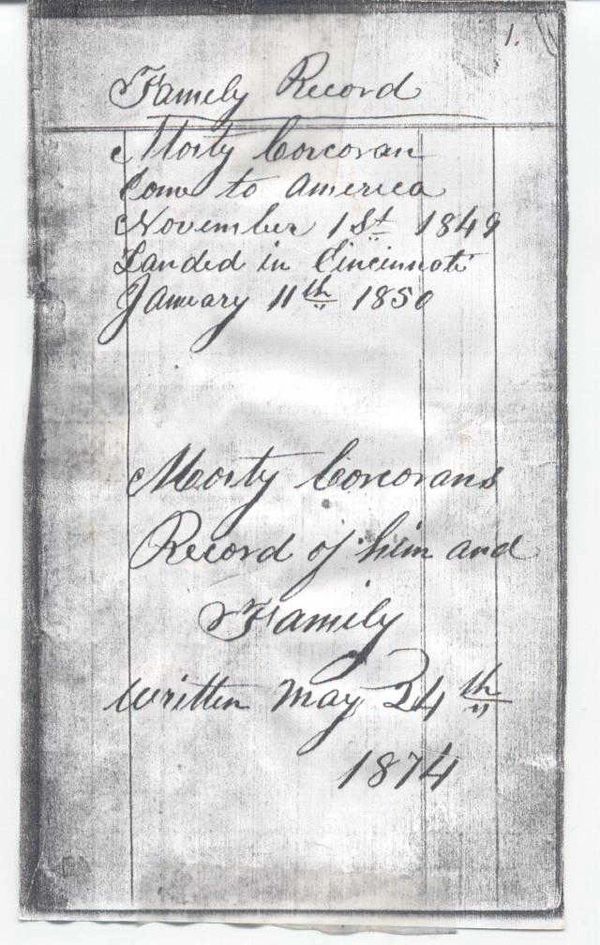 1.
Family Record
Morty Corcoran
Come to America
November 1st 1849
Landed in Cincinnati
January 11th 1850
Morty Corcorans
Record of him and
Family
written May 24th
1874